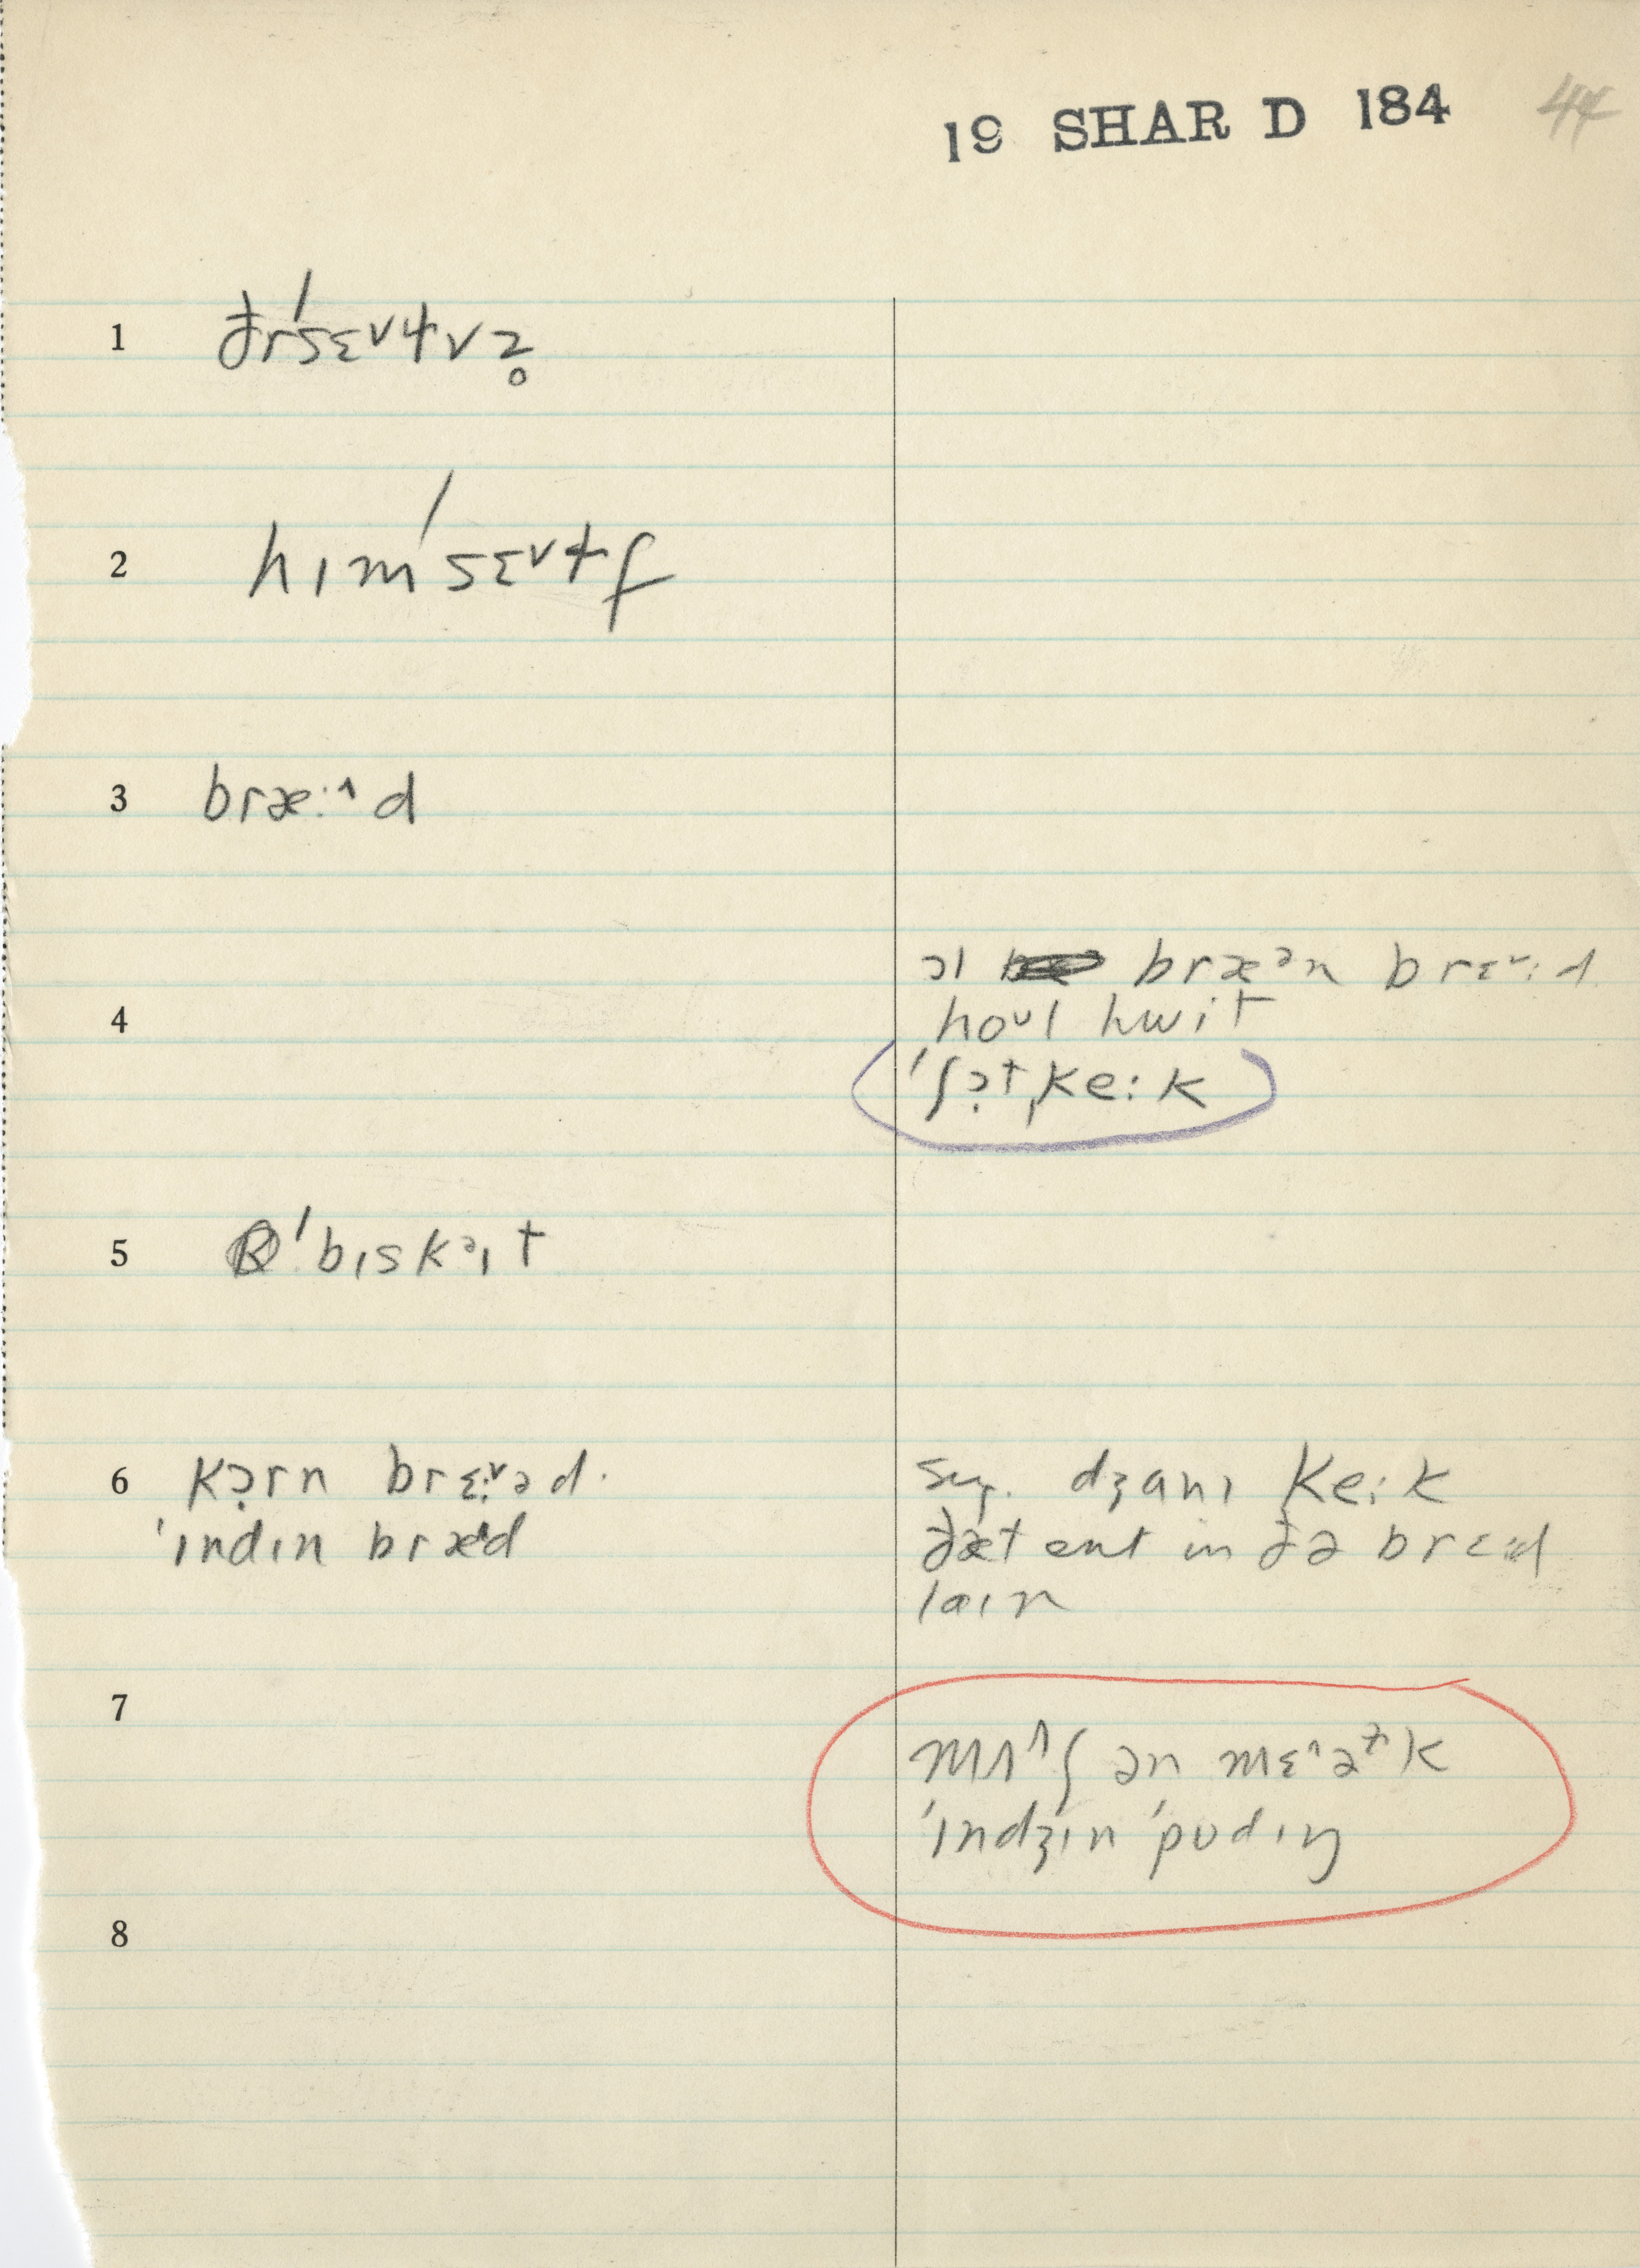 19 SHAR D 184 44
1 ðr'sɛ˅ɫvz̥
2 hɪm'sɛ˅ɫf
3 bræ:^d
ɔl bræᵊn brɛ˅:d
4 hoᴜl hwit
'ʃɔ̣t,ke:k
5 'bɪskᵊɪt
6 kɔ̣rn brɛ:˅əd.
'ɪndɪn bræᵊd
sug. dʒanɪ ke:k
ðæt ent in ðə brɛːd
laɪn
7
mʌ^ʃ ən mɛ^əɫk
'ɪndʒɪn 'pʊdɪŋ
8